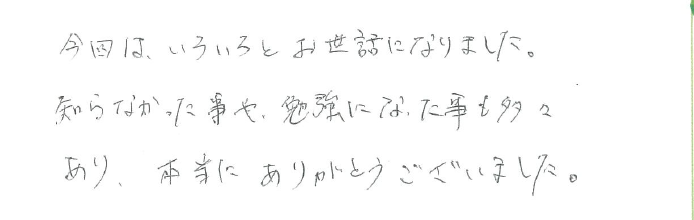 今回は、いろいろとお世話になりました。
知らなかった事や、勉強になった事も多々
あり、本当にありがとうございました。